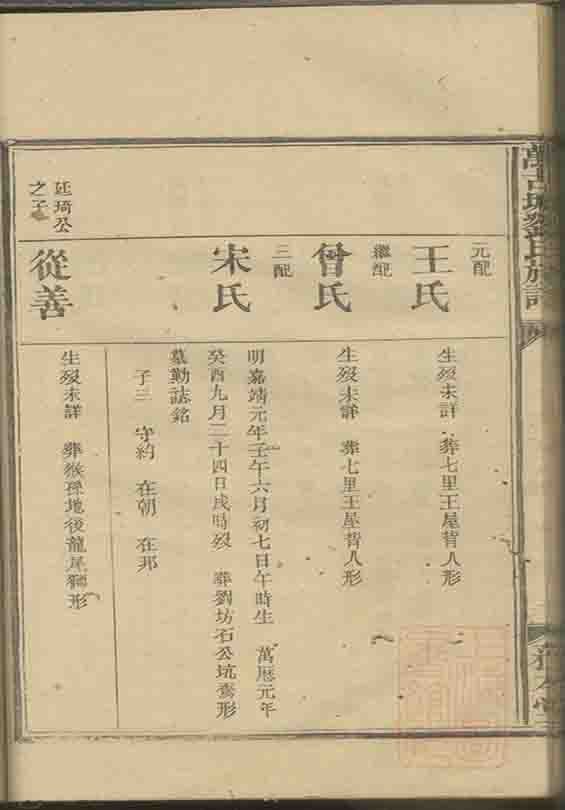 元配
王氏
生歿未詳 葬七里王屋背人形
繼配
曾氏
生歿未詳 葬七里王屋背人形
三配
宋氏
明嘉靖元年壬午六月初七日午時生 萬曆元年
癸酉九月二十四日戌時歿 葬劉坊石公坑赉形
墓勤誌銘
子三 守約 在朝 在邦
廷琦公
之子
從善
生歿未詳 葬猴孫地後龍尾獅形